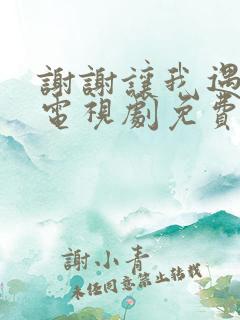 謝謝讓我遇
電視劇免費
謝小青
未任同意禁止转载